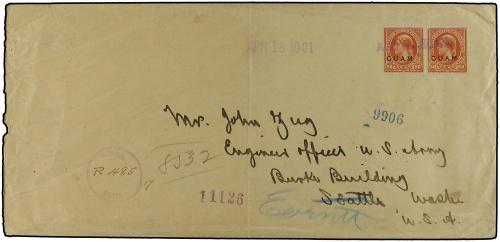 APR 18 1901
GUAM GUAM
9906
Mr. John Zug
Engineer office U.S. Army
Burke Building
Seattle Washn
U.S.A.
R.485
8532
11126
Everett